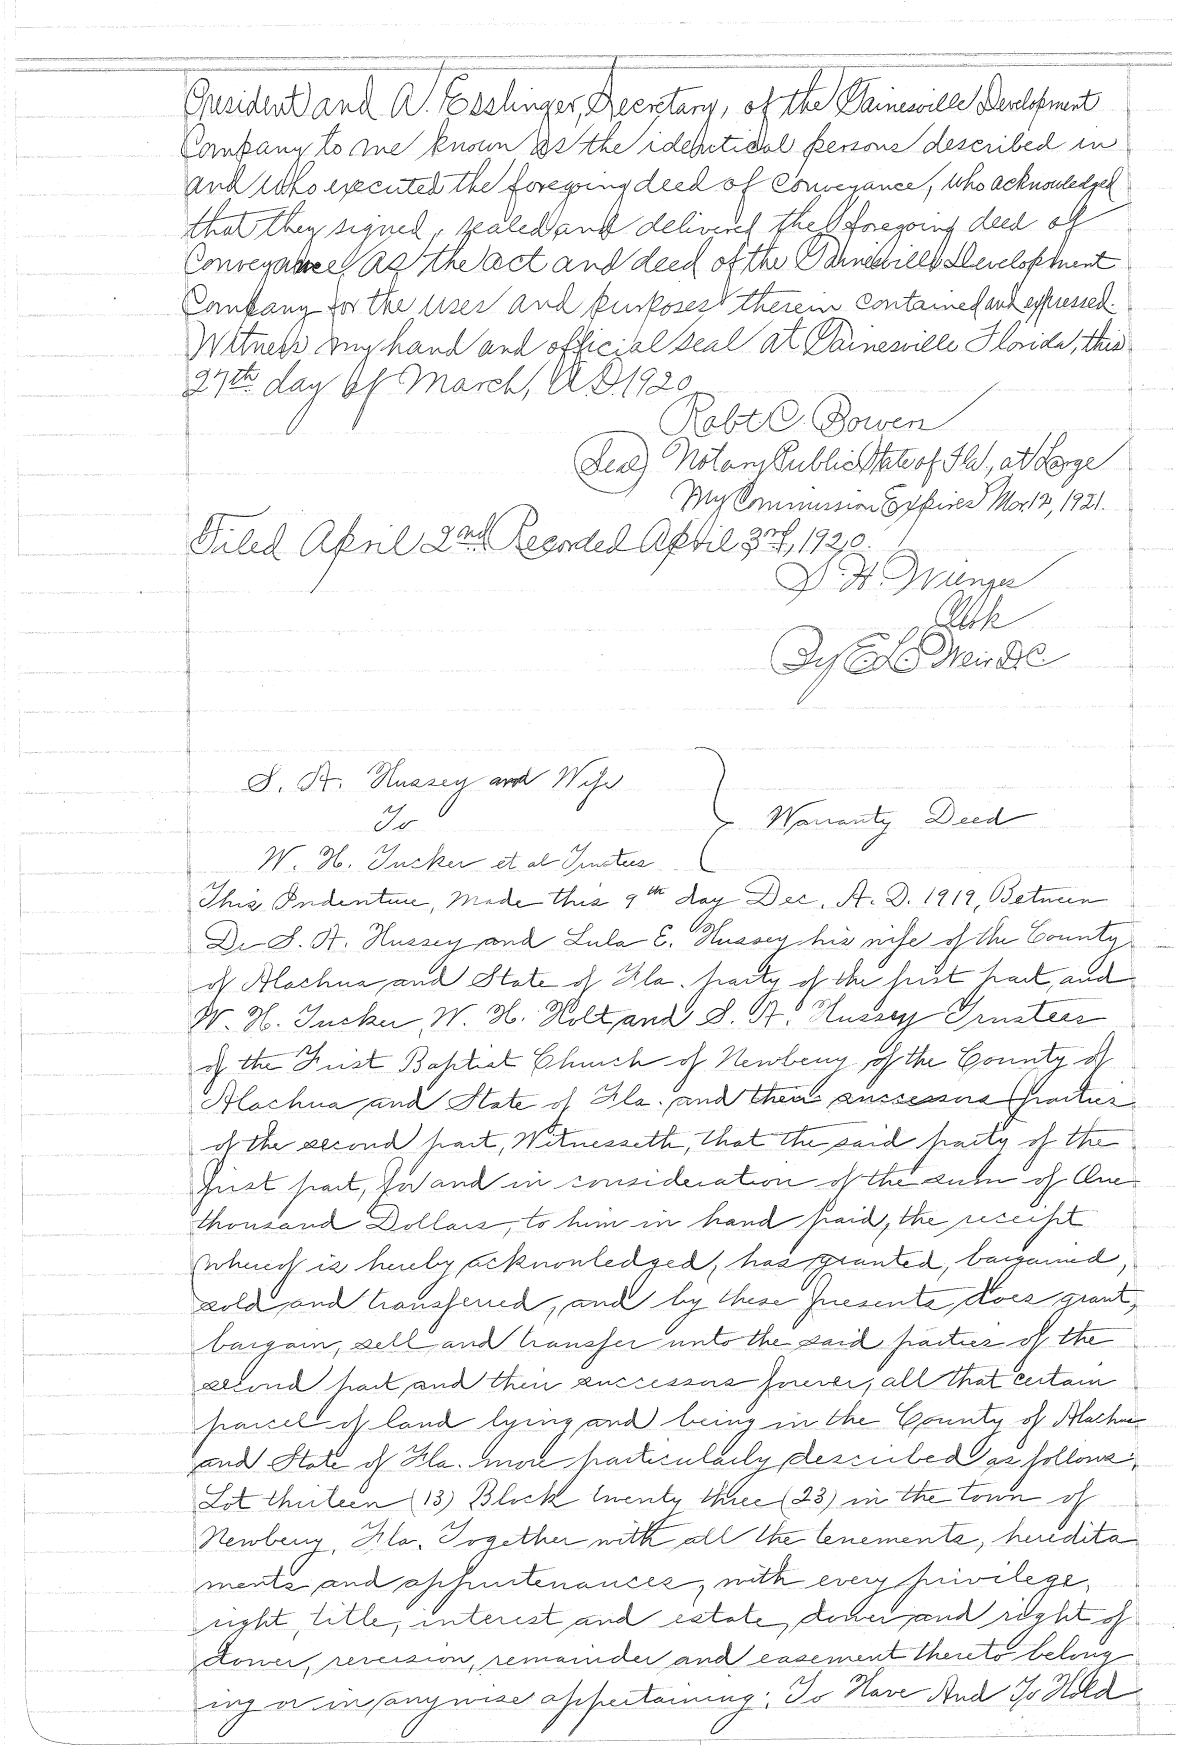 President and A. Esslinger, Secretary, of the Gainesville Development
Company to me known as the identical persons described in
and who executed the foregoing deed of conveyance, who acknowledged
that they signed, sealed and delivered the foregoing deed of
Conveyance as the act and deed of the Gainesville Development
Company for the uses and purposes therein contained and expressed.
Witness my hand and official seal at Gainesville Florida, this
27th day of March, A.D. 1920
Robt C. Bowen
(Seal) Notary Public State of Fla, at Large
My Commission Expires Mar 12, 1921.
Filed April 2nd Recorded April 3rd, 1920.
S. H. Wienges
Clerk
By E L Weir D.C.
S. A. Hussey and Wife
To
Warranty Deed
W. H. Tucker et al Trustees
This Indenture, Made this 9th day Dec. A. D. 1919, Between
Dr S. A. Hussey and Lula E. Hussey his wife of the County
of Alachua and State of Fla. party of the first part, and
W. H. Tucker, W. H. Holt, and S. A. Hussey Trustees
of the First Baptist Church of Newberry of the County of
Alachua and State of Fla. and their successors parties
of the second part, Witnesseth, that the said party of the
first part, for and in consideration of the sum of One
thousand Dollars, to him in hand paid, the receipt
whereof is hereby acknowledged, has granted, bargained,
sold and transferred, and by these presents does grant,
bargain, sell and transfer unto the said parties of the
second part and their successors forever, all that certain
parcel of land lying and being in the County of Alachua
and State of Fla. more particularly described as follows:
Lot thirteen (13) Block twenty three (23) in the town of
Newberry, Fla. Together with all the tenements, heredita
ments and appurtenances, with every privilege,
right, title, interest and estate, dower and right of
dower, reversion, remainder and easement thereto belong
ing or in anywise appertaining: To Have And To Hold